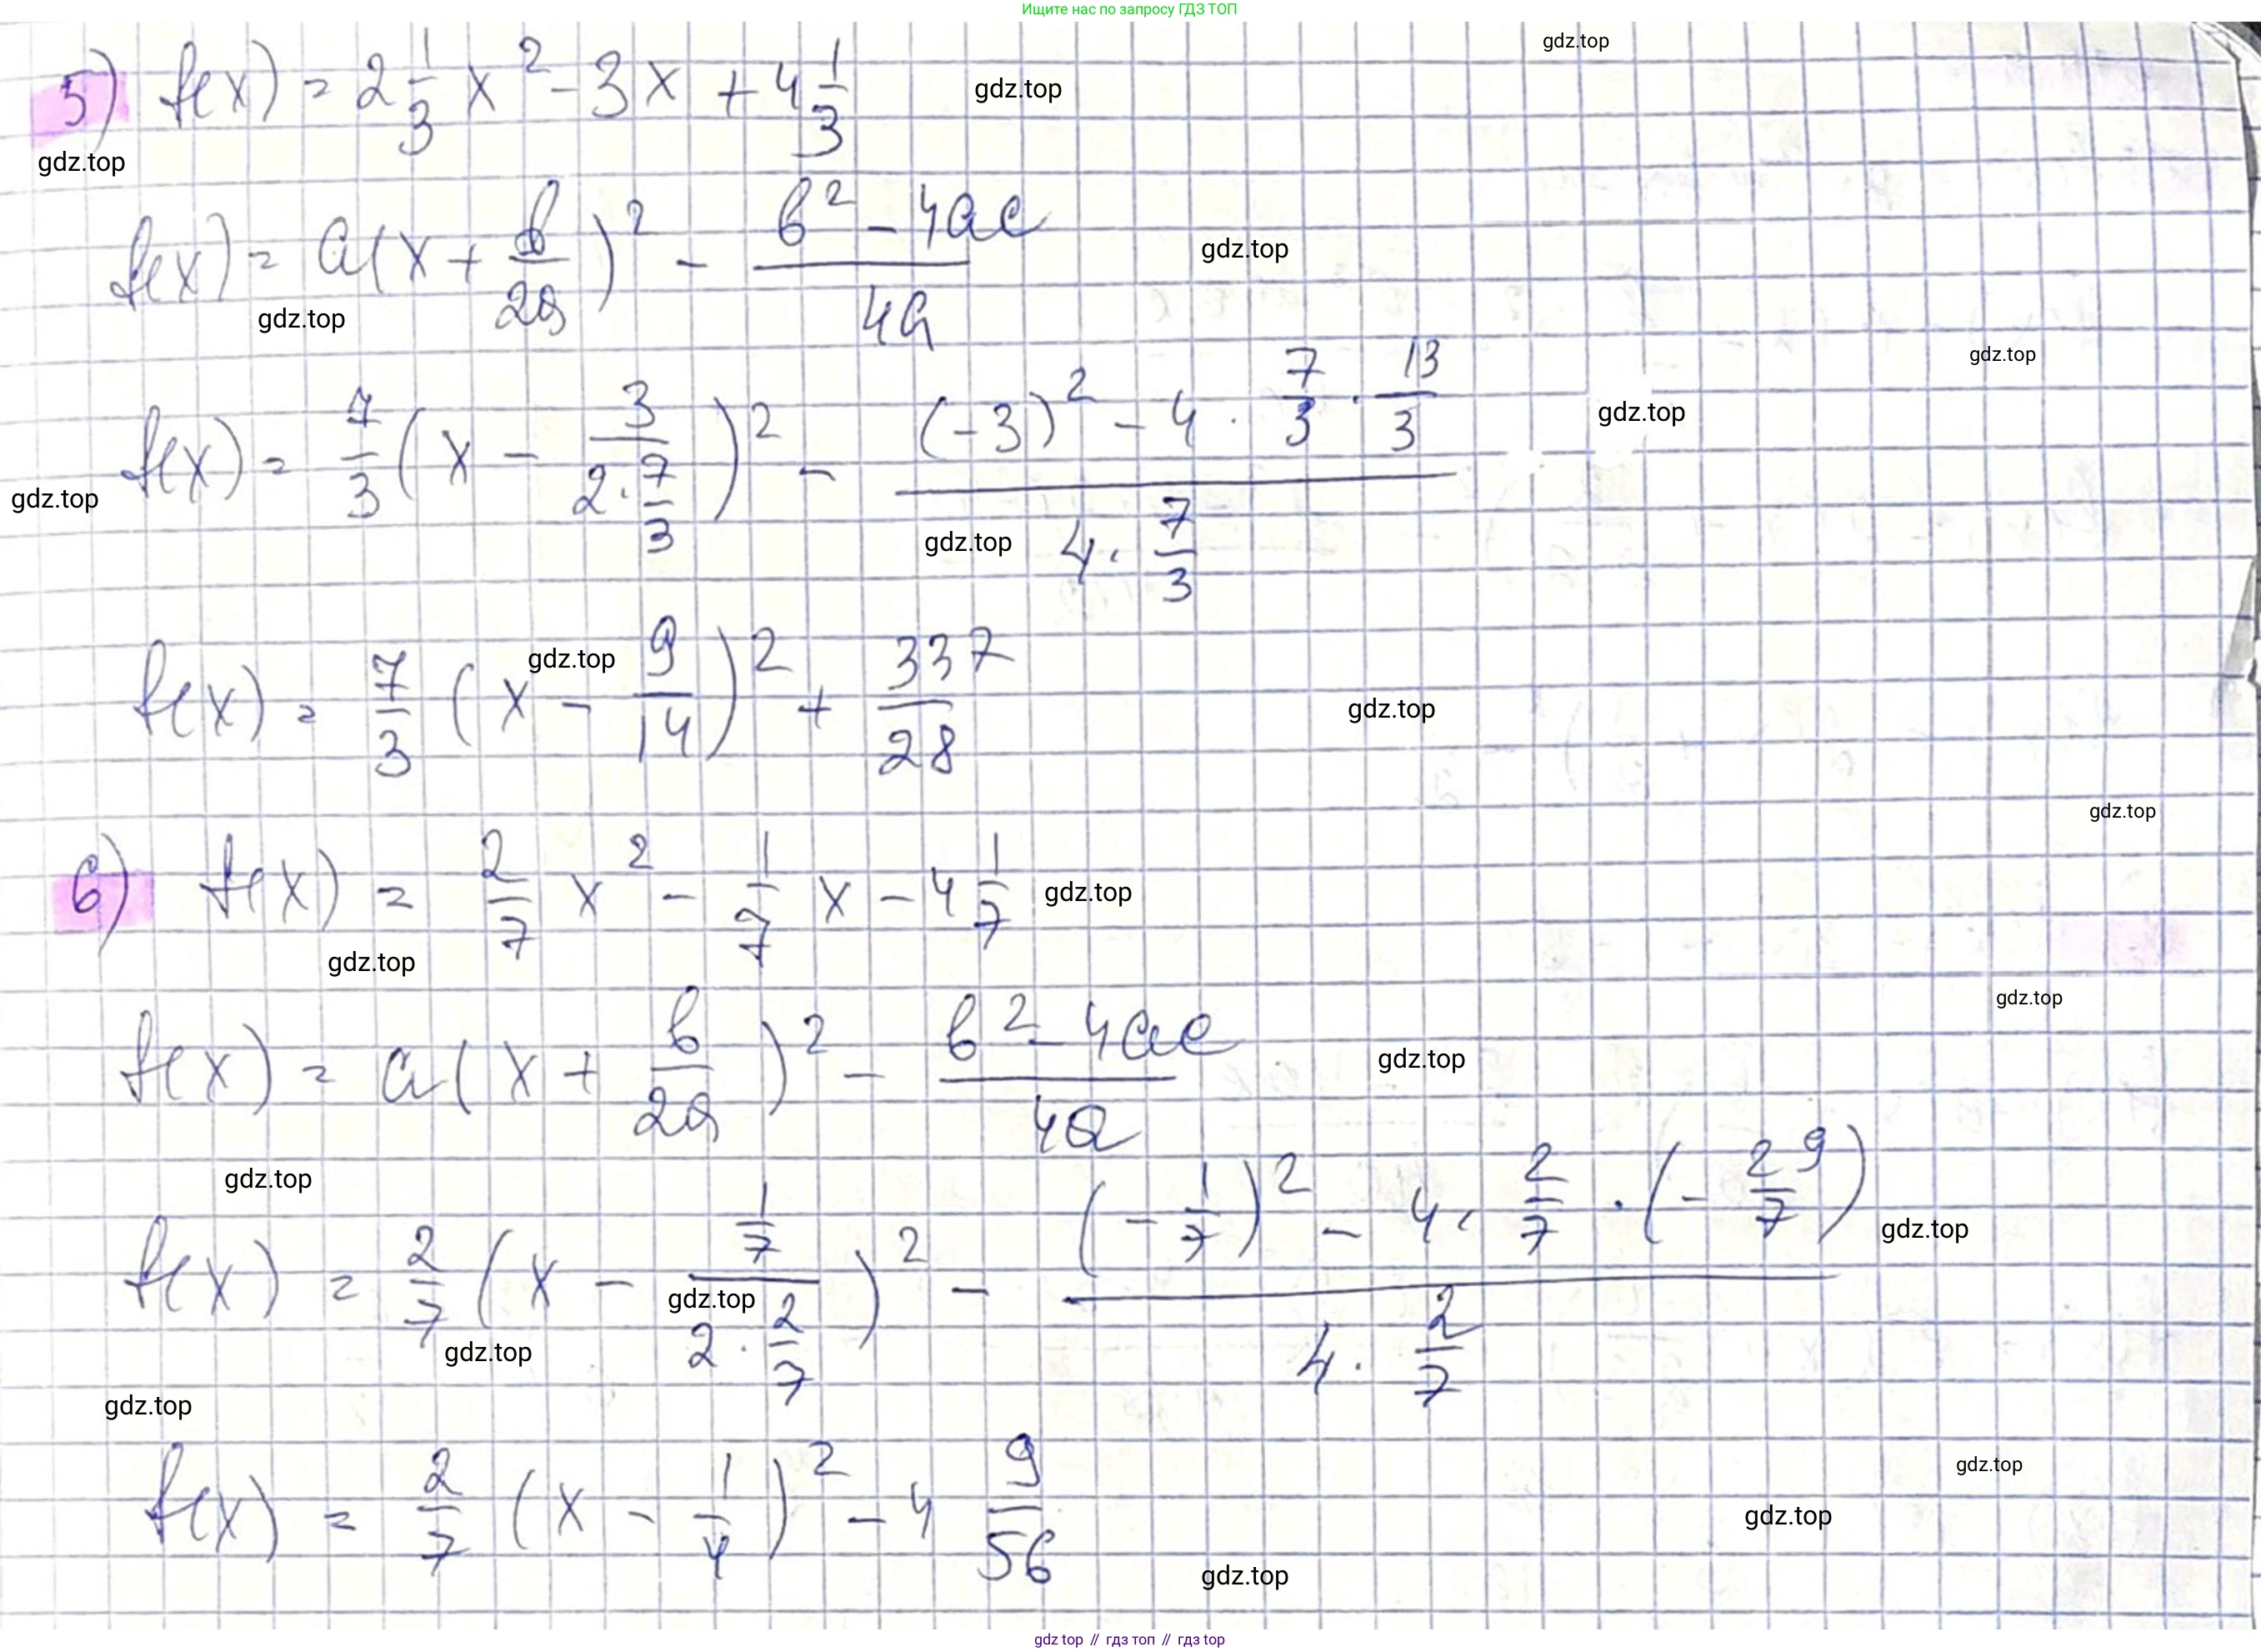 Ищите нас по запросу ГДЗ ТОП
gdz.top
5) f(x) = 2 1/3 x² - 3x + 4 1/3 gdz.top
gdz.top
f(x) = a(x + b/2a)² - b² - 4ac / 4a gdz.top
gdz.top
gdz.top
f(x) = 7/3 (x - 3/(2·7/3))² - ((-3)² - 4 · 7/3 · 13/3) / (4 · 7/3) gdz.top
gdz.top
gdz.top
f(x) = 7/3 (x - 9/14)² + 337/28 gdz.top
gdz.top
gdz.top
6) f(x) = 2/7 x² - 1/7 x - 4 1/7 gdz.top
gdz.top
gdz.top
f(x) = a(x + b/2a)² - b² - 4ac / 4a gdz.top
gdz.top
f(x) = 2/7 (x - (1/7)/(2 · 2/7))² - ((-1/7)² - 4 · 2/7 · (-29/7)) / (4 · 2/7) gdz.top
gdz.top
gdz.top
gdz.top
gdz.top
f(x) = 2/7 (x - 1/4)² - 4 9/56 gdz.top
gdz.top
gdz top // гдз топ // гдз top